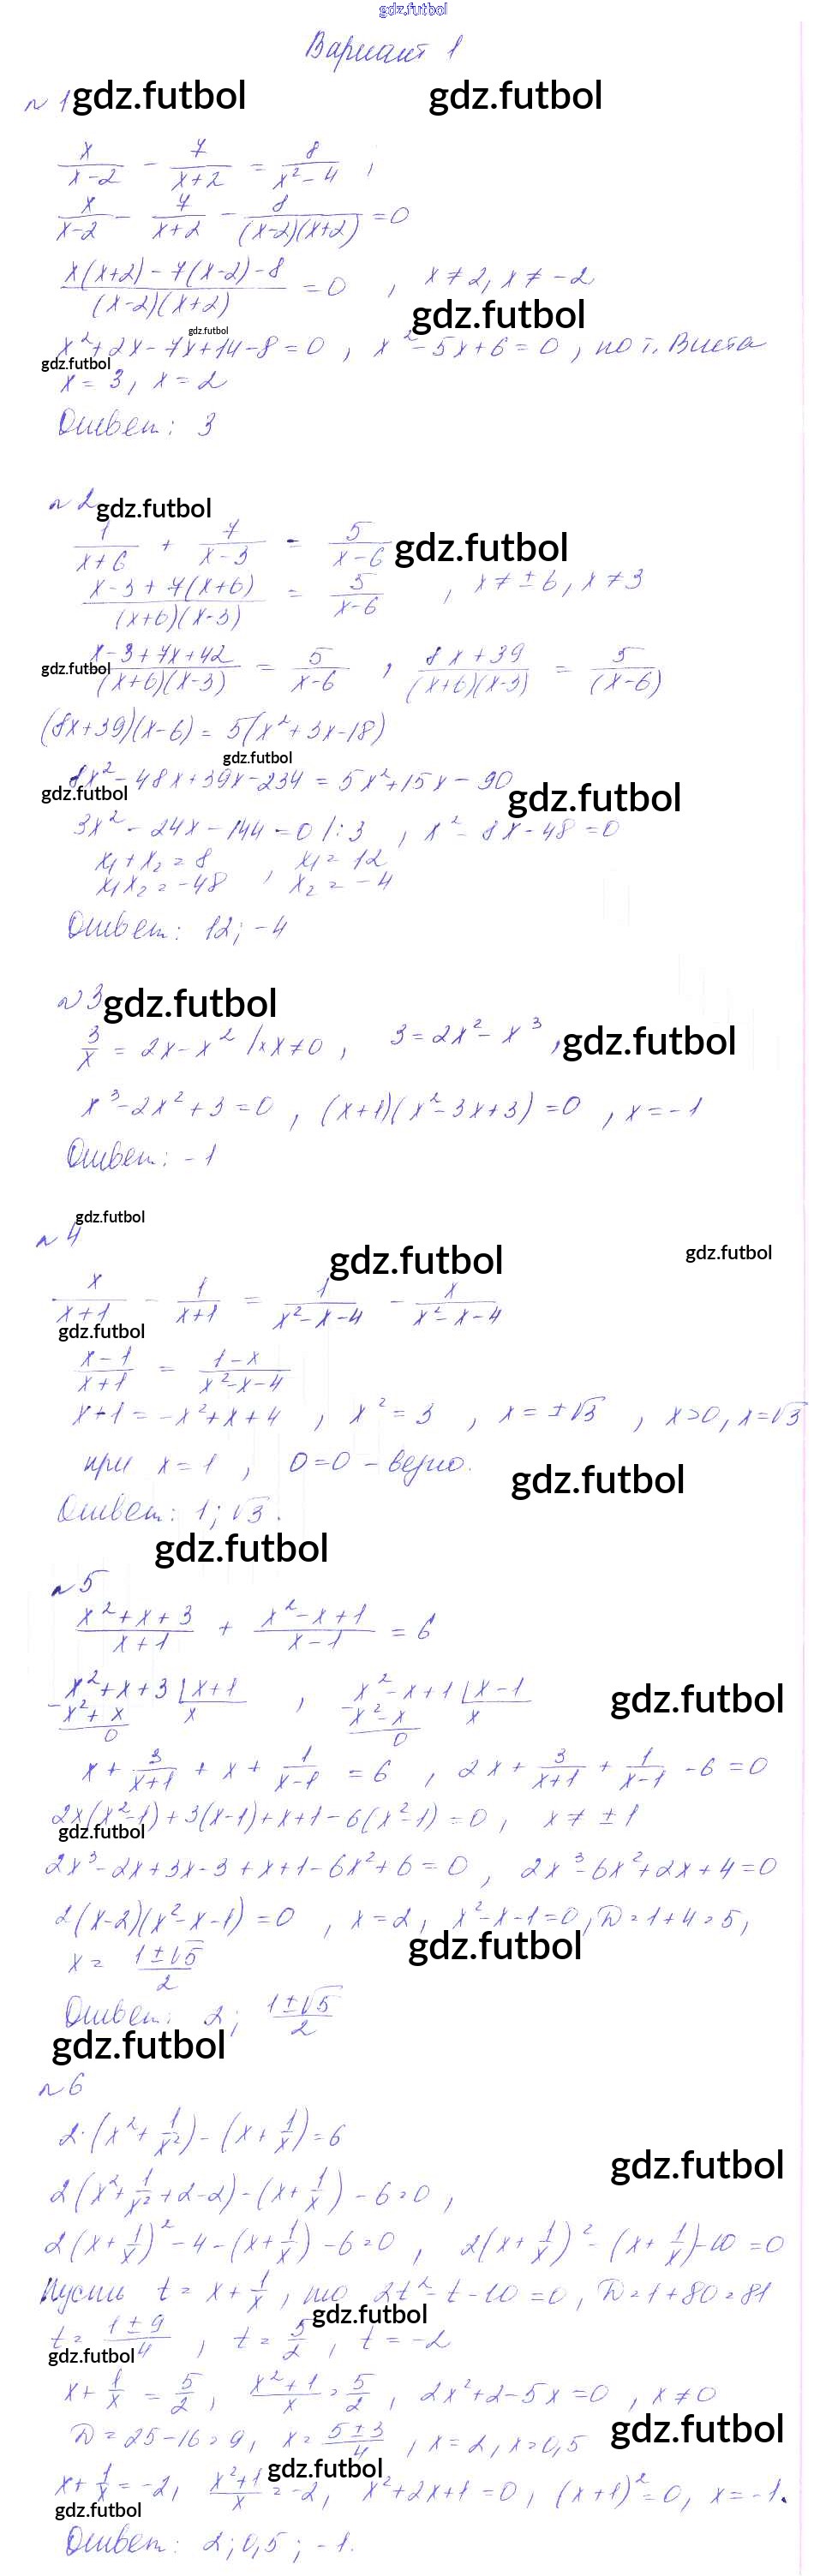 gdz.futbol
Вариант 1
№ 1 gdz.futbol gdz.futbol
x/(x-2) - 7/(x+2) = 8/(x²-4) ,
x/(x-2) - 7/(x+2) - 8/((x-2)(x+2)) = 0
(x(x+2) - 7(x-2) - 8)/((x-2)(x+2)) = 0 , x ≠ 2, x ≠ -2
gdz.futbol
gdz.futbol
x²+2x-7x+14-8=0 , x²-5x+6=0 , по т. Виета
gdz.futbol
x = 3, x = 2
Ответ: 3
№ 2 gdz.futbol
1/(x+6) + 7/(x-3) = 5/(x-6) gdz.futbol
(x-3+7(x+6))/((x+6)(x-3)) = 5/(x-6) , x ≠ ±6, x ≠ 3
gdz.futbol (x-3+7x+42)/((x+6)(x-3)) = 5/(x-6) , (8x+39)/((x+6)(x-3)) = 5/(x-6)
(8x+39)(x-6) = 5(x²+3x-18)
gdz.futbol
8x²-48x+39x-234 = 5x²+15x-90
gdz.futbol gdz.futbol
3x²-24x-144=0 /:3 , x²-8x-48=0
x₁+x₂=8 x₁=12
x₁x₂=-48 , x₂=-4
Ответ: 12; -4
№ 3 gdz.futbol
3/x = 2x-x² /·x x≠0 , 3=2x²-x³ , gdz.futbol
x³-2x²+3=0 , (x+1)(x²-3x+3)=0 , x=-1
Ответ: -1
gdz.futbol
№ 4
gdz.futbol gdz.futbol
x/(x+1) - 1/(x+1) = 1/(x²-x-4) - x/(x²-x-4)
gdz.futbol
(x-1)/(x+1) = (1-x)/(x²-x-4)
x+1=-x²+x+4 , x²=3 , x=±√3 , x>0, x=√3
при x=1 , 0=0 - верно.
gdz.futbol
Ответ: 1; √3.
gdz.futbol
№ 5
(x²+x+3)/(x+1) + (x²-x+1)/(x-1) = 6
x²+x+3 | x+1 , x²-x+1 | x-1
- x²+x x - x²-x x
0 0
gdz.futbol
x + 3/(x+1) + x + 1/(x-1) = 6 , 2x + 3/(x+1) + 1/(x-1) - 6 = 0
2x(x²-1)+3(x-1)+x+1-6(x²-1)=0 , x ≠ ±1
gdz.futbol
2x³-2x+3x-3+x+1-6x²+6=0 , 2x³-6x²+2x+4=0
2(x-2)(x²-x-1)=0 , x=2, x²-x-1=0, D=1+4=5,
gdz.futbol
x = (1±√5)/2
Ответ: 2; (1±√5)/2
gdz.futbol
№ 6
2·(x²+1/x²)-(x+1/x)=6
gdz.futbol
2(x²+1/x²+2-2)-(x+1/x)-6=0 ,
2(x+1/x)²-4-(x+1/x)-6=0 , 2(x+1/x)²-(x+1/x)-10=0
Пусть t=x+1/x , то 2t²-t-10=0, D=1+80=81
gdz.futbol
t=(1±9)/4 , t=5/2 , t=-2
gdz.futbol
x+1/x=5/2 , (x²+1)/x=5/2 , 2x²+2-5x=0 , x≠0
D=25-16=9, x=(5±3)/4 , x=2, x=0,5 gdz.futbol
gdz.futbol
x+1/x=-2, (x²+1)/x=-2, x²+2x+1=0, (x+1)²=0, x=-1.
gdz.futbol
Ответ: 2; 0,5; -1.